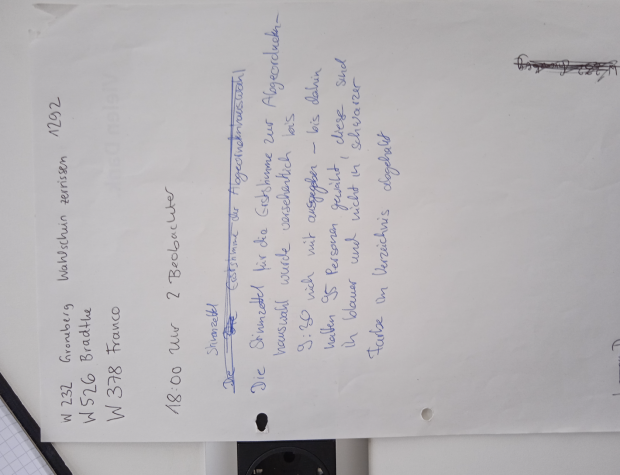 W 232 Groneberg Wahlschein zerrissen 1292
W 526 Bradthe
W 378 Franco
18:00 Uhr 2 Beobachter
Stimmzettel
Die Erststimme der Abgeordnetenhauswahl
Die Stimmzettel für die Erststimme zur Abgeordneten-
hauswahl wurde versehentlich bis
9:30 nich mit ausgegeben – bis dahin
haben 95 Personen gewählt, diese sind
in blauer und nicht in schwarzer
Farbe im Verzeichnis abgehakt